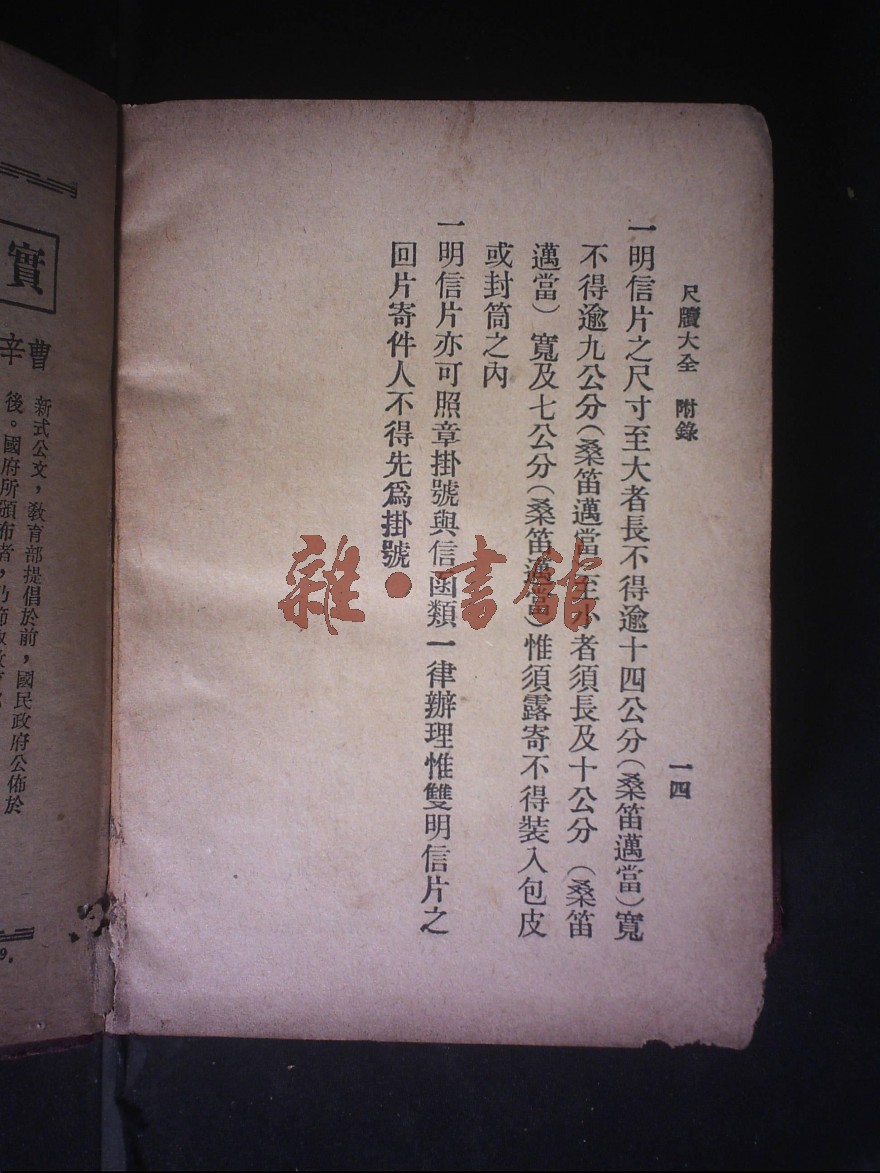 尺牘大全 附錄
一四
一明信片之尺寸至大者長不得逾十四公分(桑笛邁當)寬
不得逾九公分(桑笛邁當至少者須長及十公分 (桑笛
邁當) 寬及七公分(桑笛邁當)惟須露寄不得裝入包皮
或封筒之內
一明信片亦可照章掛號與信函類一律辦理惟雙明信片之
回片寄件人不得先爲掛號
雜·書館
實
曹辛
新式公文，教育部提倡於前，國民政府公佈於
後。國府所頒布者，